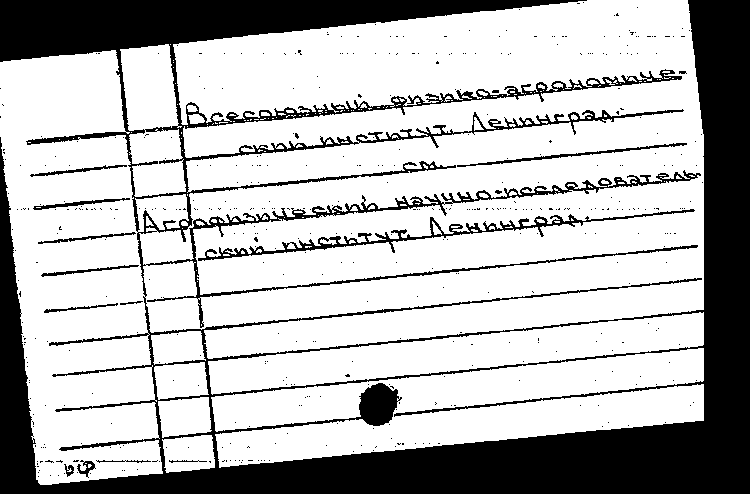 Всесоюзный физико-агрономиче-
ский институт. Ленинград.
см.
Агрофизический научно-исследователь-
ский институт. Ленинград.